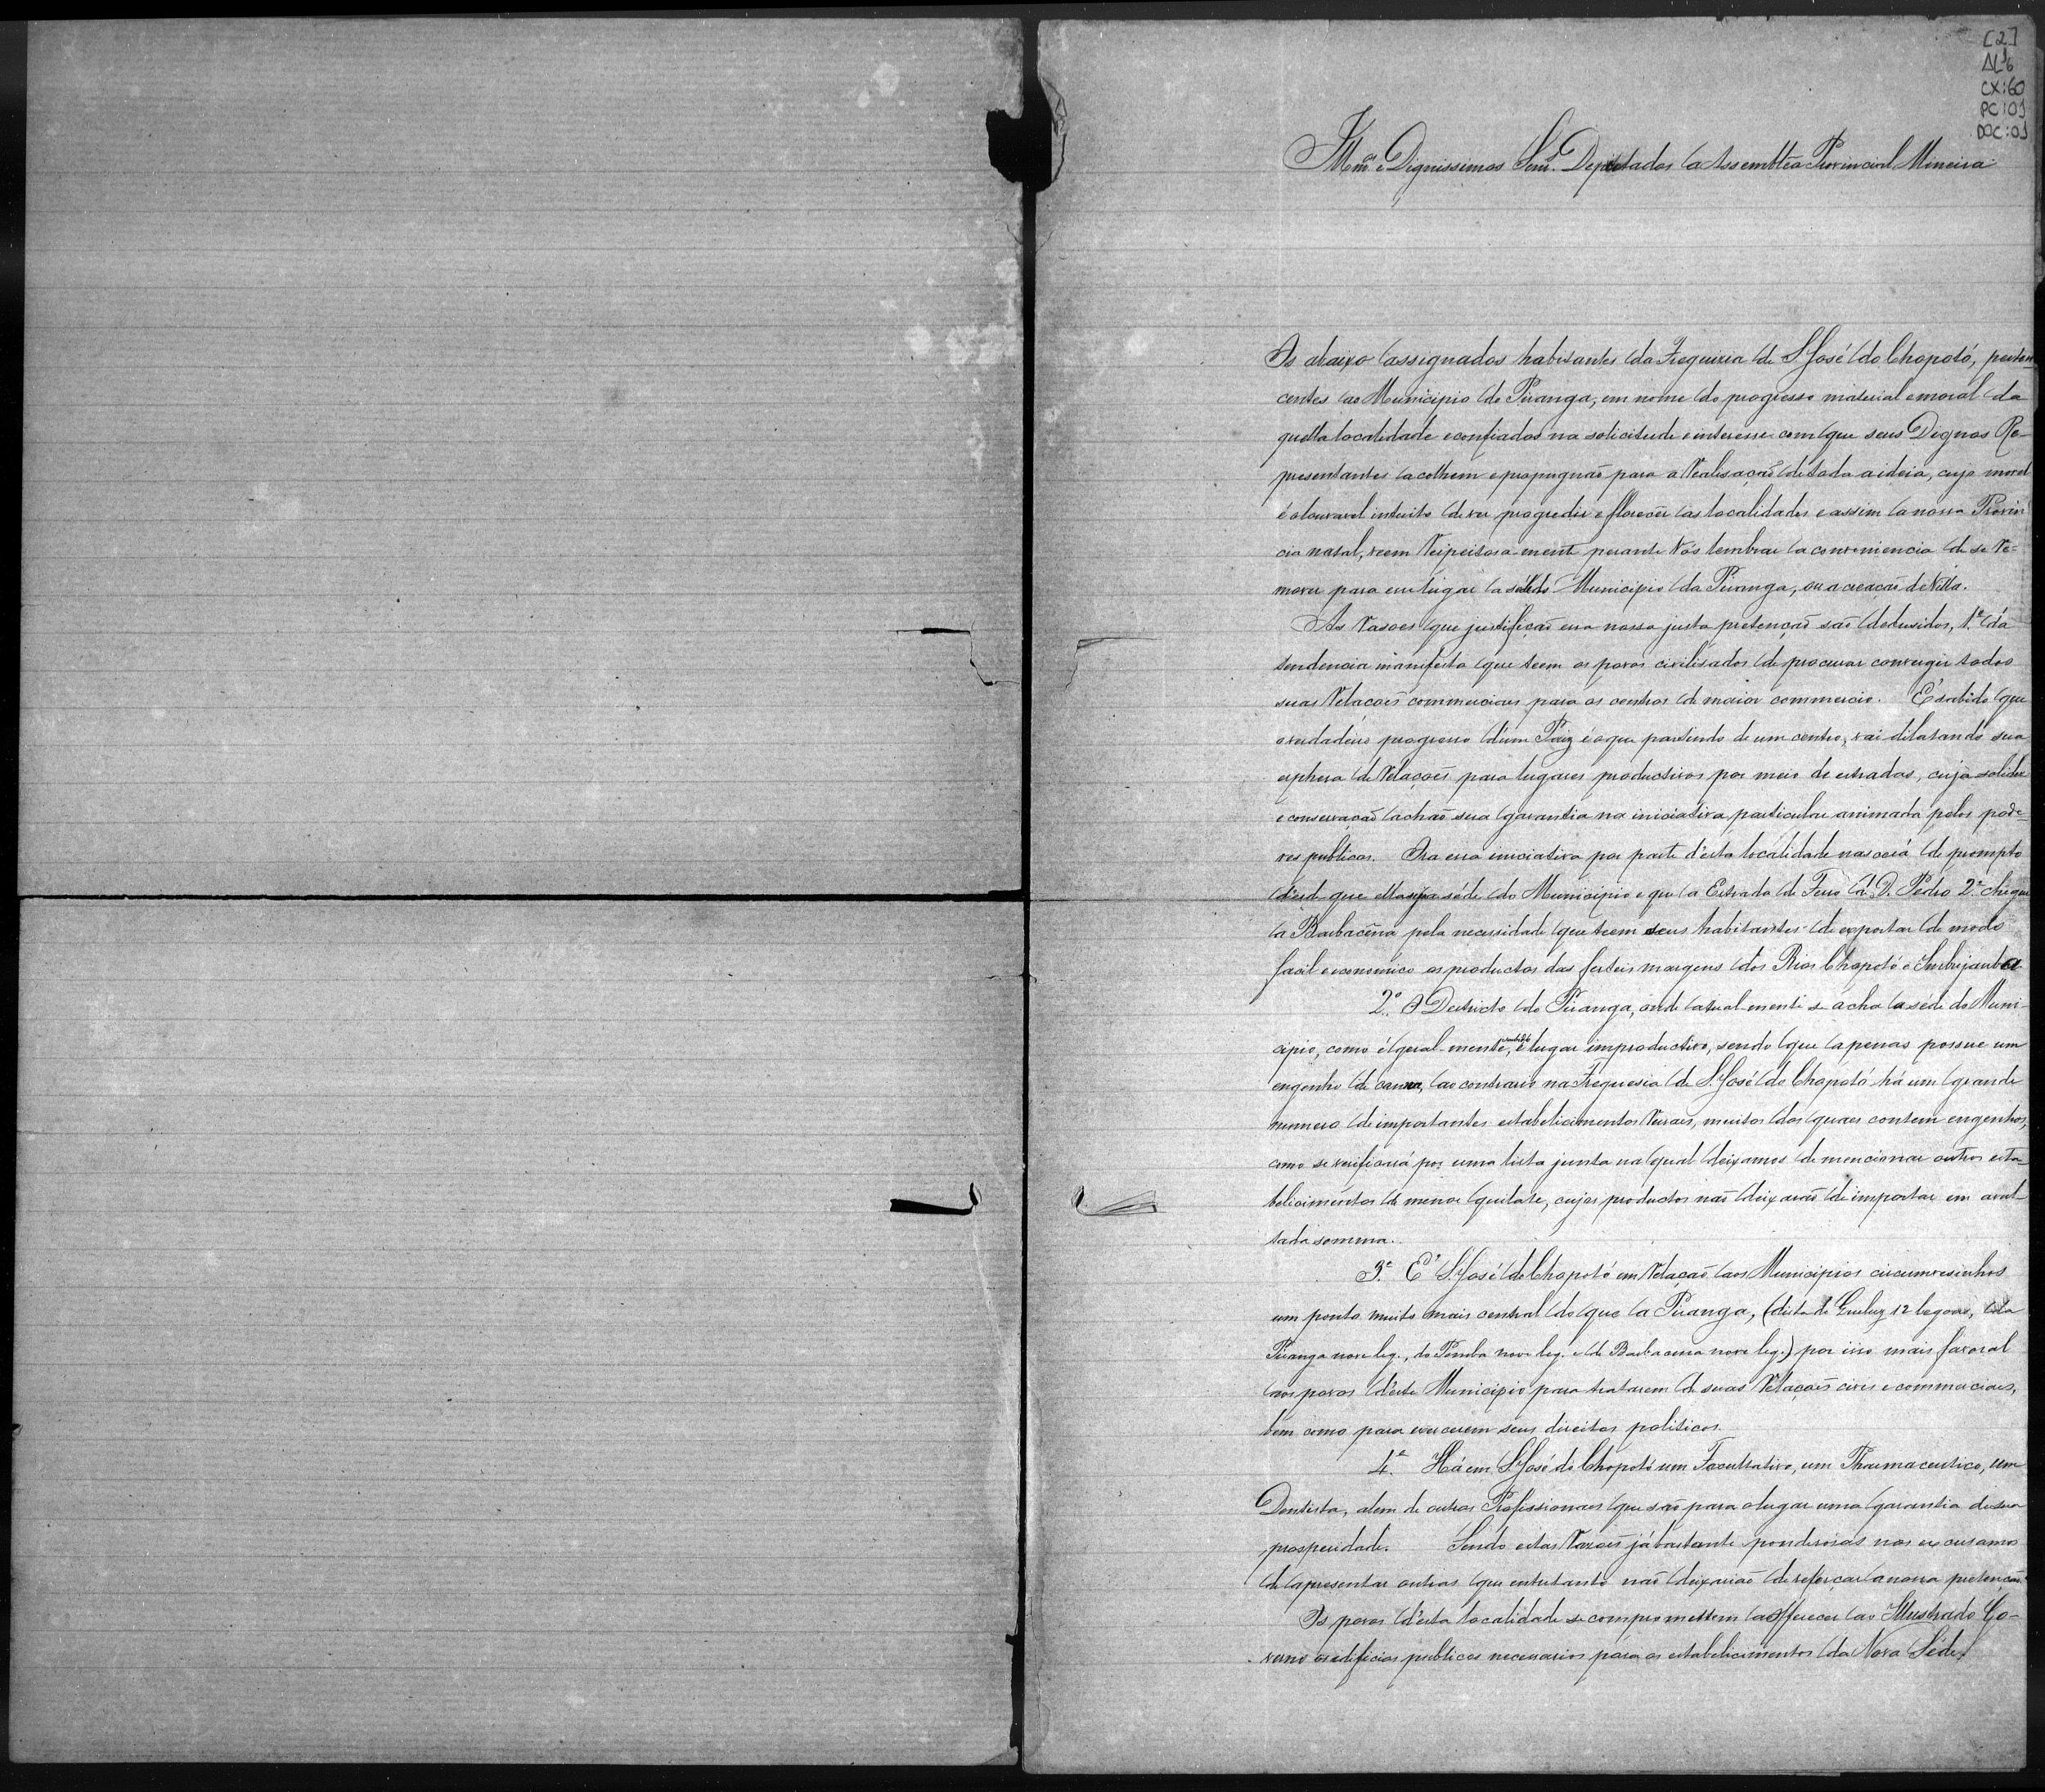 [2]
AL⅓6
CX:60
PC:01
DOC:01
Illmos. e Dignissimos Senrs. Deputados a Assemblea Provincial Mineira
Os abaixo assignados habitantes da Freguizia de S. José do Chopotó, perten-
centes ao Municipio do Piranga, em nome do progresso material e moral da
quella localidade e confiados na solicitude e interesse com que seus Dignos Re-
presentantes acolhem e propugnão para a realisação de toda a ideia, cujo movel
é o louvavel intuito de ver progredir e florecer as localidades e assim a nossa Provin
cia natal, veem respeitosa-mente perante Vós lembrar a conveniencia de se re-
mover para esse lugar a séde do Municipio da Piranga, ou a creação de Villa.
As rasoes que justificão essa nossa justa pretenção são dedusidas, 1.ª da
tendencia manifesta que teem os povos civilisados de procurar convergir todas
suas relacoes commerciaes para os centros de maior commercio. E' sabido que
o verdadeiro progresso d'um Paiz é o que partindo de um centro, vai dilatando sua
esphera de relaçoes para lugares productivos por meio de estradas, cuja solidez
e conservação achão sua garantia na iniciativa particular animada pelos pode-
res publicos. Ora essa iniciativa por parte d'esta localidade nascerá de prompto
désde que ella seja séde do Municipio e que a Estrada de Ferro D. Pedro 2.º chegue
a Barbacena pela necessidade que teem seus habitantes de exportar de modo
facil e economico os productos das ferteis margens dos Rios Chopotó e
2.º O Destricto do Piranga, onde atual-mente se acha a sede do Muni-
cipio, como é geral-mente sabido, é lugar improductivo, sendo que apenas possue um
engenho de canna, ao contrario na Freguesia de S. José do Chopotó há um grande
numero de importantes estabelicimentos ruraes, muitos dos quaes contem engenhos,
como se verificará por uma lista junta na qual deixamos de mencionar outros esta-
belicimentos de menor quilate, cujos productos não deixarão de importar em avul-
tada somma.
3.ª E' S. José do Chopotó em relação aos Municipios circumvesinhos
um ponto muito mais central do que a Piranga, (dista de Queluz 12 legoas, da
Piranga nove leg., do Pomba nove leg. e de Barbacena nove leg.) por isso mais favoral
aos povos d'este Municipio para tratarem de suas relaçoes civis e commerciaes,
bem como para exercerem seus direitos politicos.
4.ª Há em S. José do Chopotó um Facultativo, um Pharmaceutico, um
Dentista, alem de outros Profissionaes que são para o lugar uma garantia de sua
prosperidade. Sendo estas rasoes já bastante ponderosas nos excusamos
de apresentar outras que entretanto não deixarião de reforçar a nossa pretenção.
Os povos d'esta localidade se compromettem a offerecer ao Illustrado Go-
verno os edificios publicos necessarios para os estabelicimentos da Nova Séde.